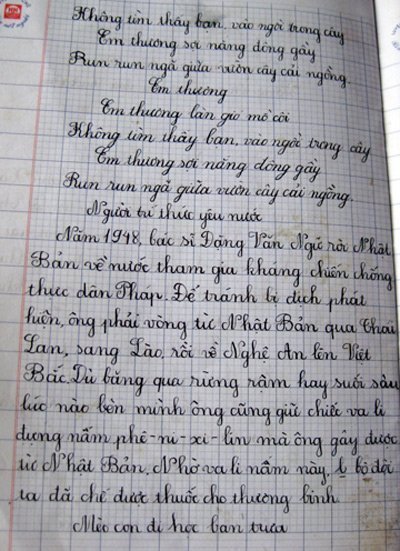 Không tìm thấy bạn, vào ngồi trong cây
Em thương sợi nắng đông gầy
Run run ngã giữa vườn cây cải ngồng.
Em thương
Em thương làn gió mồ côi
Không tìm thấy bạn, vào ngồi trong cây
Em thương sợi nắng đông gầy
Run run ngã giữa vườn cây cải ngồng.
Người trí thức yêu nước
Năm 1948, bác sĩ Đặng Văn Ngữ rời Nhật
Bản về nước tham gia kháng chiến chống
thực dân Pháp. Để tránh bị địch phát
hiện, ông phải vòng từ Nhật Bản qua Thái
Lan, sang Lào, rồi về Nghệ An lên Việt
Bắc. Dù băng qua rừng rậm hay suối sâu
lúc nào bên mình ông cũng giữ chiếc va li
đựng nấm pê-ni-xi-lin mà ông gây được
từ Nhật Bản. Nhờ va li nấm này, bộ đội
ta đã chế được thuốc cho thương binh
Mèo con đi học ban trưa